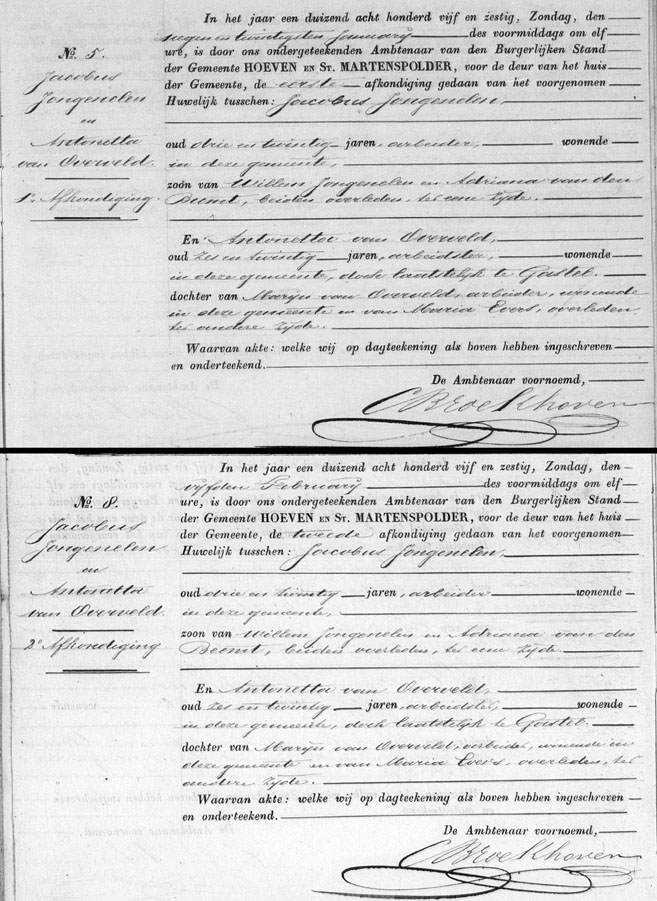 No. 5.
Jacobus
Jongenelen
en
Antonetta
van Overveld.
1e Afkondiging
In het jaar een duizend acht honderd vijf en zestig, Zondag, den
negen en twintigsten Januarij des voormiddags om elf
ure, is door ons ondergeteekenden Ambtenaar van den Burgerlijken Stand
der Gemeente HOEVEN EN ST. MARTENSPOLDER, voor de deur van het huis
der Gemeente, de eerste afkondiging gedaan van het voorgenomen
Huwelijk tusschen: Jacobus Jongenelen,
oud drie en twintig jaren, arbeider, wonende
in deze gemeente,
zoon van Willem Jongenelen en Adriana van den
Beemt, beiden overleden, ter eene zijde.
En Antonetta van Overveld,
oud zes en twintig jaren, arbeidster, wonende
in deze gemeente, doch laatstelijk te Gastel.
dochter van Maryn van Overveld, arbeider, wonende
in deze gemeente en van Maria Evers, overleden,
ter andere zijde.
Waarvan akte: welke wij op dagteekening als boven hebben ingeschreven
en onderteekend.
De Ambtenaar voornoemd,
CBroekhoven
No. 8.
Jacobus
Jongenelen
en
Antonetta
van Overveld.
2e Afkondiging
In het jaar een duizend acht honderd vijf en zestig, Zondag, den
vijfden Februarij des voormiddags om elf
ure, is door ons ondergeteekenden Ambtenaar van den Burgerlijken Stand
der Gemeente HOEVEN EN ST. MARTENSPOLDER, voor de deur van het huis
der Gemeente, de tweede afkondiging gedaan van het voorgenomen
Huwelijk tusschen: Jacobus Jongenelen,
oud drie en twintig jaren, arbeider wonende
in deze gemeente,
zoon van Willem Jongenelen en Adriana van den
Beemt, beiden overleden, ter eene zijde.
En Antonetta van Overveld,
oud zes en twintig jaren, arbeidster, wonende
in deze gemeente, doch laatstelijk te Gastel.
dochter van Maryn van Overveld, arbeider, wonende in
deze gemeente en van Maria Evers, overleden, ter
andere zijde.
Waarvan akte: welke wij op dagteekening als boven hebben ingeschreven
en onderteekend.
De Ambtenaar voornoemd,
CBroekhoven